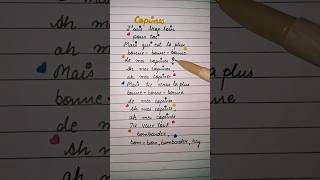 Copines
J'suis trop loin
pour toi
Mais qui est la plus
bonne - bonne - bonne
de mes copines ?
Ah mes copines
ah mes copines
Mais Tu veux la plus
bonne - bonne - bonne
de mes copines
Ah mes copines,
ah mes copines
Tu veux tout
bombarder,
bom-bam, bombarder, hey